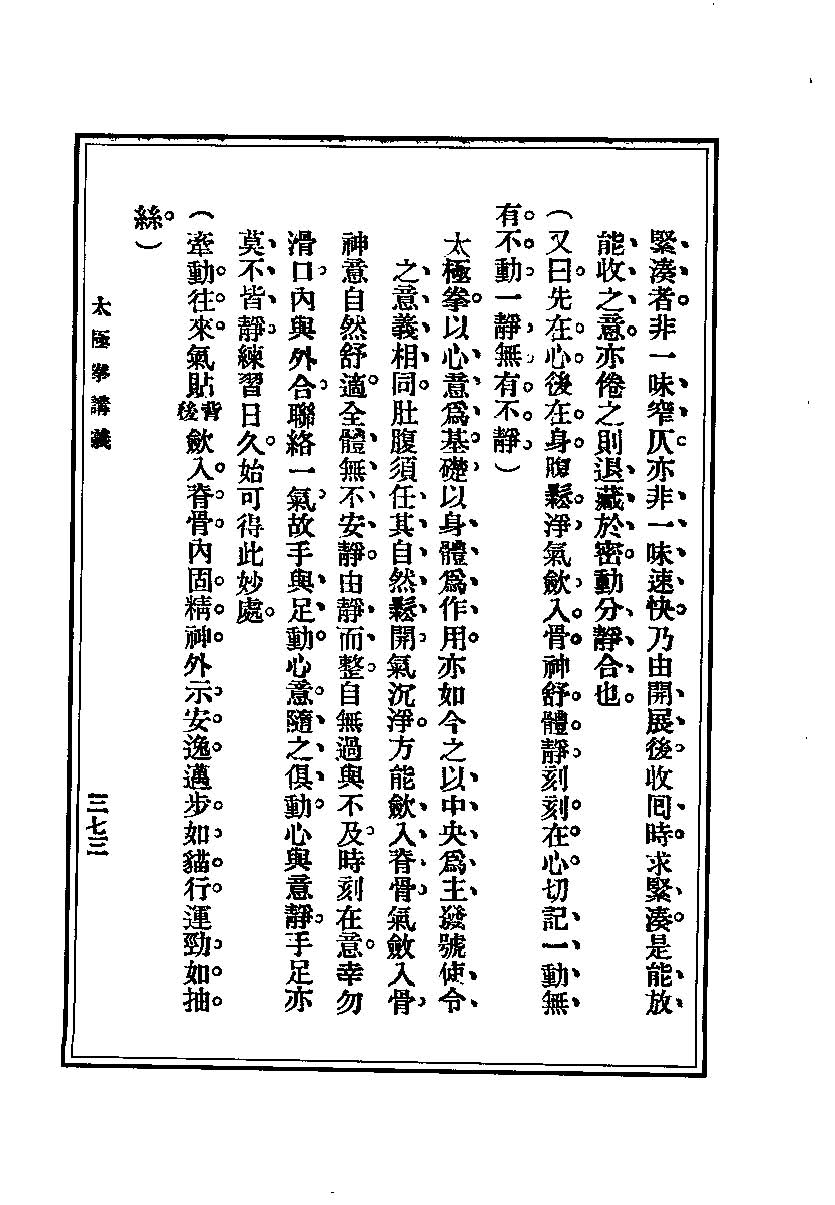 緊湊者非一味窄仄亦非一味速快乃由開展後收囘時求緊湊是能放
能收之意亦倦之則退藏於密動分靜合也
（又曰先在心後在身腹鬆淨氣斂入骨神舒體靜刻刻在心切記一動無
有不動一靜無有不靜）
太極拳以心意爲基礎以身體爲作用亦如今之以中央爲主發號使令
之意義相同肚腹須任其自然鬆開氣沉淨方能斂入脊骨氣斂入骨
神意自然舒適全體無不安靜由靜而整自無過與不及時刻在意幸勿
滑口內與外合聯絡一氣故手與足動心意隨之俱動心與意靜手足亦
莫不皆靜練習日久始可得此妙處
（牽動往來氣貼背後斂入脊骨內固精神外示安逸邁步如貓行運勁如抽
絲）
太極拳講義
三七三